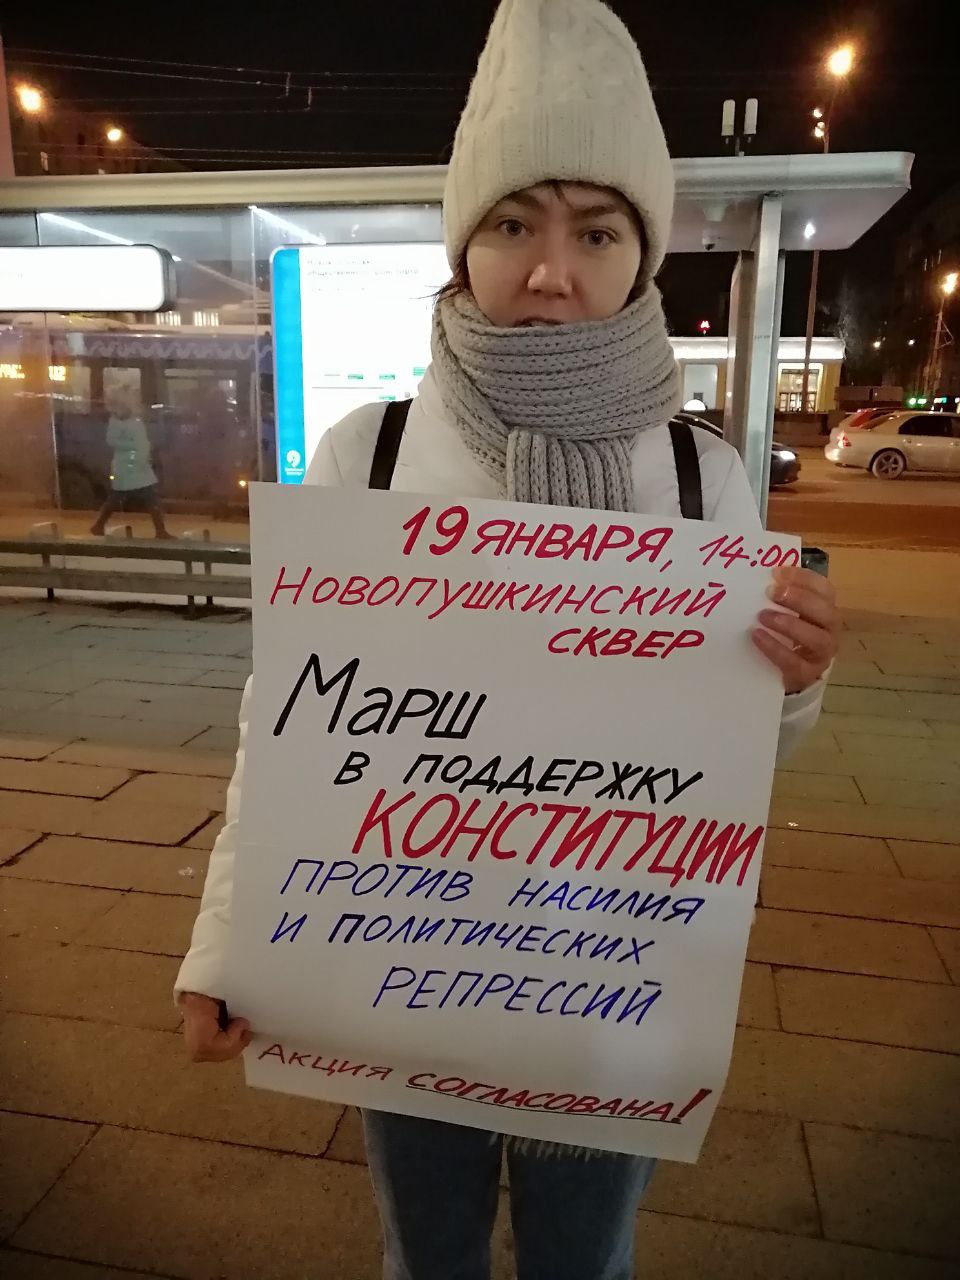 19 ЯНВАРЯ, 14:00
НОВОПУШКИНСКИЙ
СКВЕР
Марш
в поддержку
КОНСТИТУЦИИ
ПРОТИВ НАСИЛИЯ
и политических
РЕПРЕССИЙ
Акция согласована!